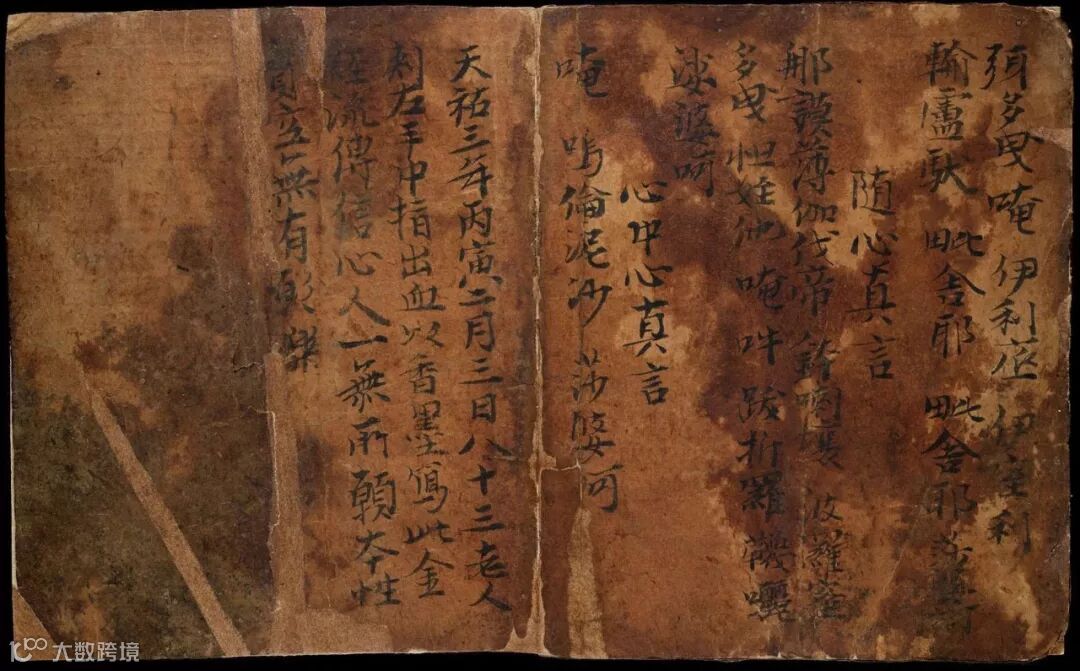 須多曳唵 伊利底 伊室利
輸盧馱 毗舍耶 毗舍耶 莎婆訶
随心真言
那謨薄伽伐帝 鉢喇壤 波羅蜜
多曳 怛姪他 唵 吽 跋折羅
娑婆呵
心中心真言
唵 嗚倫泥沙 莎婆訶
天祐三年丙寅二月三日八十三老人
刺左手中指出血以香墨寫此金
經流傳信心人一無所願本性
實空無有願樂
大数跨境